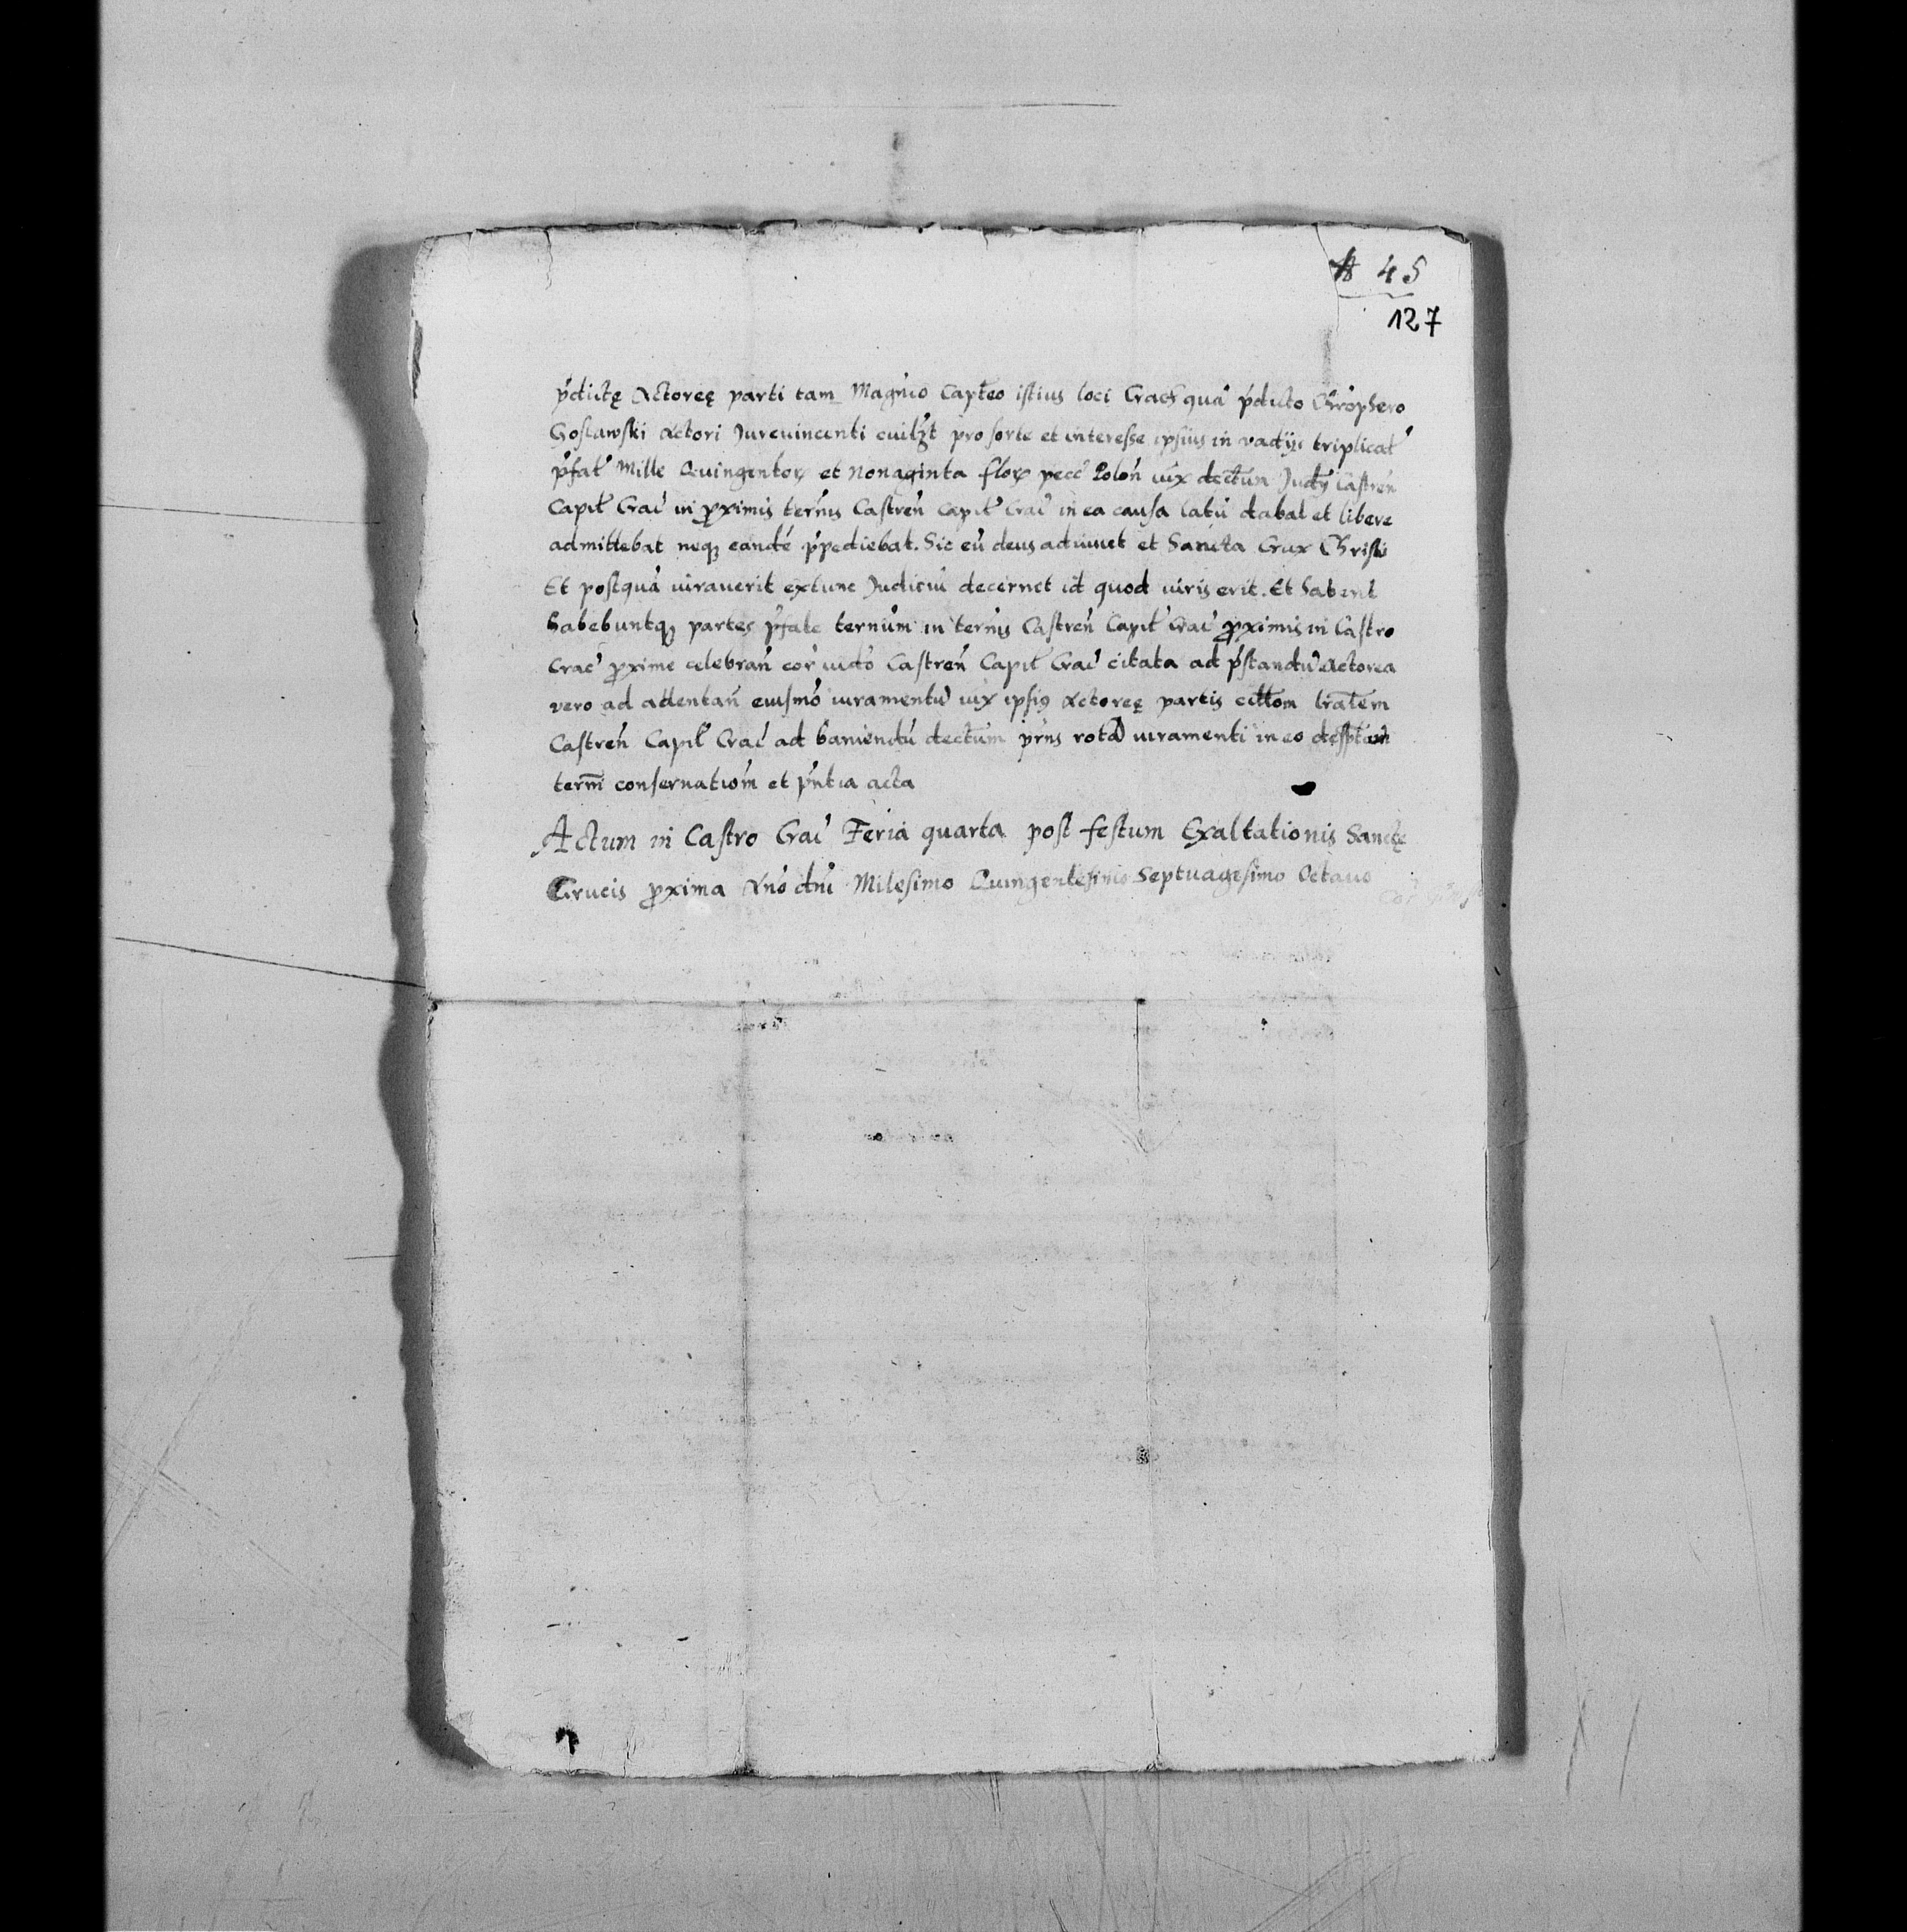 45
127
p'dictę Actoreę parti tam Magn'co Capt̃eo istius loci Crac̃ quã p'dicto Chr'ophero
Goslawski Actori Jurevincenti pro sorte et interesse ipsius in vadijs triplicat'
p'fat' Mille Quingentor et Nonaginta flor pecc' Polon' iux dect̃um Judẏ Castren'
Capit' Crac' in proximis ter'nis Castren' Capit' Crac' in ea causa latũ dabat et libere
admittebat neq3 eandẽ p'pediebat. Sic eũ deus adiuuet et Sancta Crux Christi
Et postquã iurauerit extunc Judiciũ decernet id quod iuris erit. Et habent
habebuntq3 partes p'fate ter'num in ter'nis Castren' Capit' Crac' proximis in Castro
Crac' proxime celebran' cor' iud'o Castren' Capit' Crac' citata ad p'standũ Actorea
vero ad attentan' eiusmõ iuramentũ iux ipsi9 Actoreę partis citt̃om lrat̃em
Castren' Capit' Crac' ad baniendũ dectum p'ns rotã iuramenti in eo
term̃i conseruatiom̃ et p'ntia acta
Actum in Castro Crac' Feria quarta post festum Exaltationis Sanctę
Crucis proxima Anõ dnĩ Milesimo Quingentesimo Septuagesimo Octauo